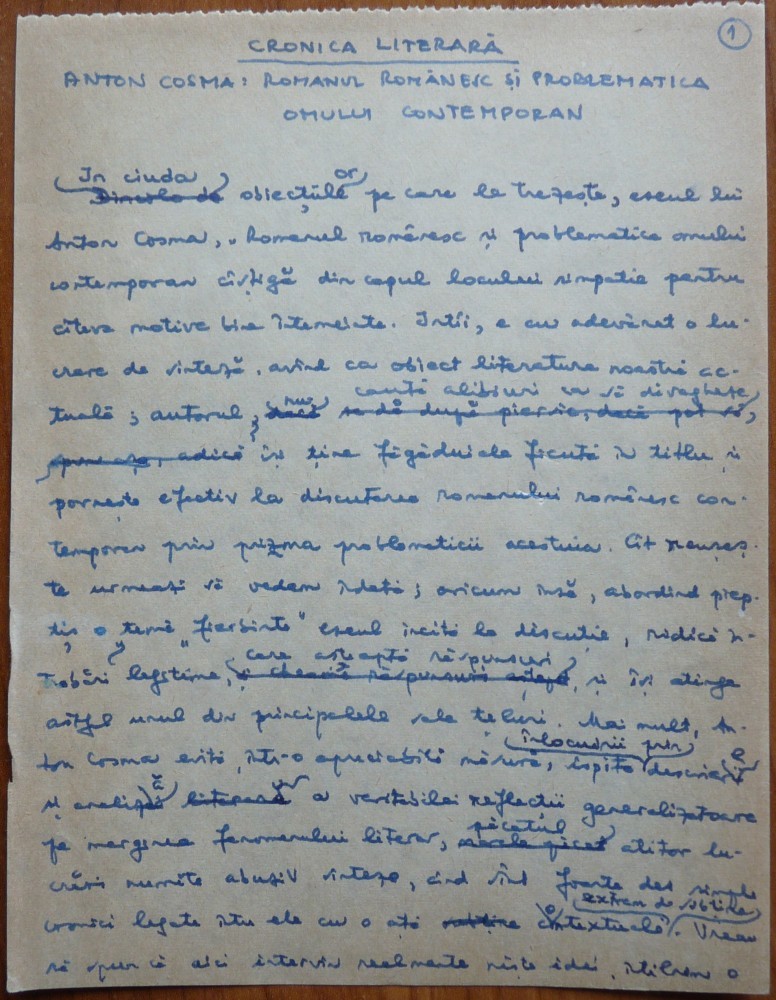 1
CRONICA LITERARĂ
ANTON COSMA: ROMANUL ROMÂNESC ȘI PROBLEMATICA
OMULUI CONTEMPORAN
In ciuda or
Dincolo de obiecțiile pe care le trezește, eseul lui
Anton Cosma, „Romanul românesc și problematica omului
contemporan cîștigă din capul locului simpatie pentru
cîteva motive bine întemeiate. Întîi, e cu adevărat o lu-
crare de sinteză, avînd ca obiect literatura noastră ac-
caută alibiuri ca să divagheze
tuală; autorul, nu se dă după piersic, dacă pot să
spun așa, adică își ține făgăduiala făcută în titlu și
pornește efectiv la discutarea romanului românesc con-
temporan prin prizma problematicii acestuia. Cît reușeș-
te urmează să vedem îndată; oricum însă, abordînd piep-
tiș o temă "fierbinte" eseul incită la discuție, ridică în-
care așteaptă răspunsuri
trebări legitime, și cheamă răspunsuri, și își atinge
astfel unul din principalele sale țeluri. Mai mult, An-
înlocuirii prin
ton Cosma evită, într-o apreciabilă măsură, ispita descrierii
și analiză literară a veritabilei reflecții generalizatoare
păcatul
pe marginea fenomenului literar, marele păcat atîtor lu-
crări numite abuziv sinteze, cînd sînt foarte des simple
extrem de subțire
cronici legate între ele cu o ață subțire contextuală. Vreau
să spun că aici intervin realmente niște idei, întîlnim o